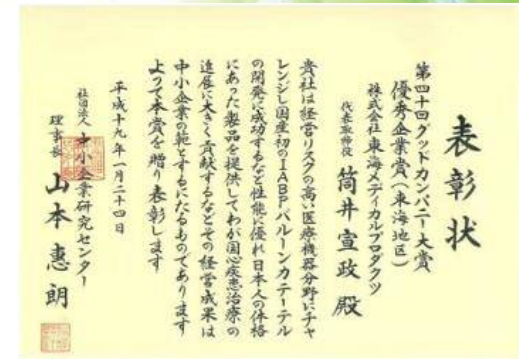 表彰状
第四十回グッドカンパニー大賞
優秀企業賞(東海地区)
株式会社東海メディカルプロダクツ
代表取締役 筒井宣政 殿
貴社は経営リスクの高い医療機器分野にチャ
レンジし国産初のIABPバルーンカテーテル
の開発に成功するなど性能に優れ日本人の体格
にあった製品を提供してわが国心疾患治療の
進展に大きく貢献するなどその経営成果は
中小企業の範とするにたるものであります
よって本賞を贈り表彰します
平成十九年一月二十四日
社団法人 中小企業研究センター
理事長 山本惠朗